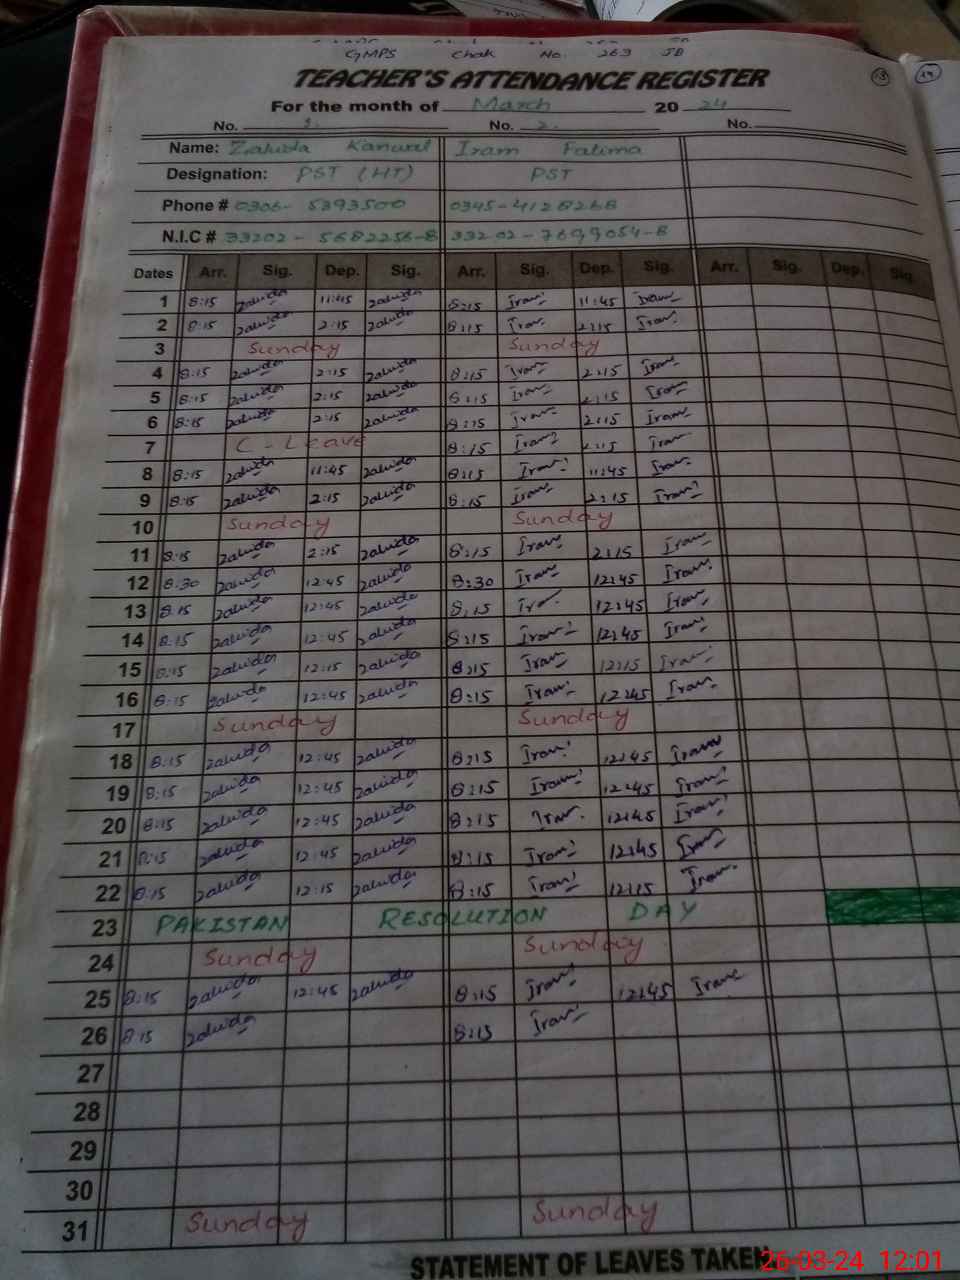 GMPS Chak No. 263 JB
TEACHER'S ATTENDANCE REGISTER 13 14
For the month of March 20 24
No. 1. No. 2. No.
Name: Zahida Kanwal Iram Fatima
Designation: PST (HT) PST
Phone # 0306-5393500 0345-4128268
N.I.C # 33202-5682256-8 33202-7699054-8
Dates Arr. Sig. Dep. Sig. Arr. Sig. Dep. Sig. Arr. Sig. Dep. Sig.
1 8:15 Zahida 11:45 Zahida 8:15 Iram 11:45 Iram
2 8:15 Zahida 2:15 Zahida 8:15 Iram 2:15 Iram
3 Sunday Sunday
4 8:15 Zahida 2:15 Zahida 8:15 Iram 2:15 Iram
5 8:15 Zahida 2:15 Zahida 8:15 Iram 2:15 Iram
6 8:15 Zahida 2:15 Zahida 8:15 Iram 2:15 Iram
7 C-Leave 8:15 Iram 2:15 Iram
8 8:15 Zahida 11:45 Zahida 8:15 Iram 11:45 Iram
9 8:15 Zahida 2:15 Zahida 8:15 Iram 2:15 Iram
10 Sunday Sunday
11 8:15 Zahida 2:15 Zahida 8:15 Iram 2:15 Iram
12 8:30 Zahida 12:45 Zahida 8:30 Iram 12:45 Iram
13 8:15 Zahida 12:45 Zahida 8:15 Iram 12:45 Iram
14 8:15 Zahida 12:45 Zahida 8:15 Iram 12:45 Iram
15 8:15 Zahida 12:15 Zahida 8:15 Iram 12:15 Iram
16 8:15 Zahida 12:45 Zahida 8:15 Iram 12:45 Iram
17 Sunday Sunday
18 8:15 Zahida 12:45 Zahida 8:15 Iram 12:45 Iram
19 8:15 Zahida 12:45 Zahida 8:15 Iram 12:45 Iram
20 8:15 Zahida 12:45 Zahida 8:15 Iram 12:45 Iram
21 8:15 Zahida 12:45 Zahida 8:15 Iram 12:45 Iram
22 8:15 Zahida 12:15 Zahida 8:15 Iram 12:15 Iram
23 PAKISTAN RESOLUTION DAY
24 Sunday Sunday
25 8:15 Zahida 12:45 Zahida 8:15 Iram 12:45 Iram
26 8:15 Zahida 8:15 Iram
27
28
29
30
31 Sunday Sunday
STATEMENT OF LEAVES TAKEN
26-03-24 12:01